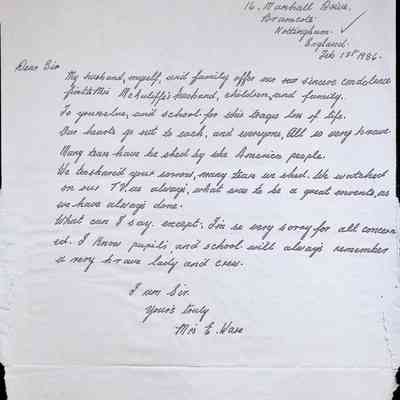 16. Marshall Drive.
Bramcote.
Nottingham.
England.
Feb 1st 1986.
Dear Sir
My husband, myself, and family offer our sincere condolence
Mrs McAuliffe's husband, children, and family.
To yourselve, and school for this tragic loss of life.
Our hearts go out to each, and everyone, All so very brave
Many tears have be shed by the America people.
We shared your sorrow, many tears we shed. We watched
on our T.V, as always, what was to be a great events, as
we have always done.
What can I say. except. I'm so very sorry for all concern
ed. I know pupils and school will always remember
a very brave lady and crew.
I am Sir.
Your's truly
Mrs E.